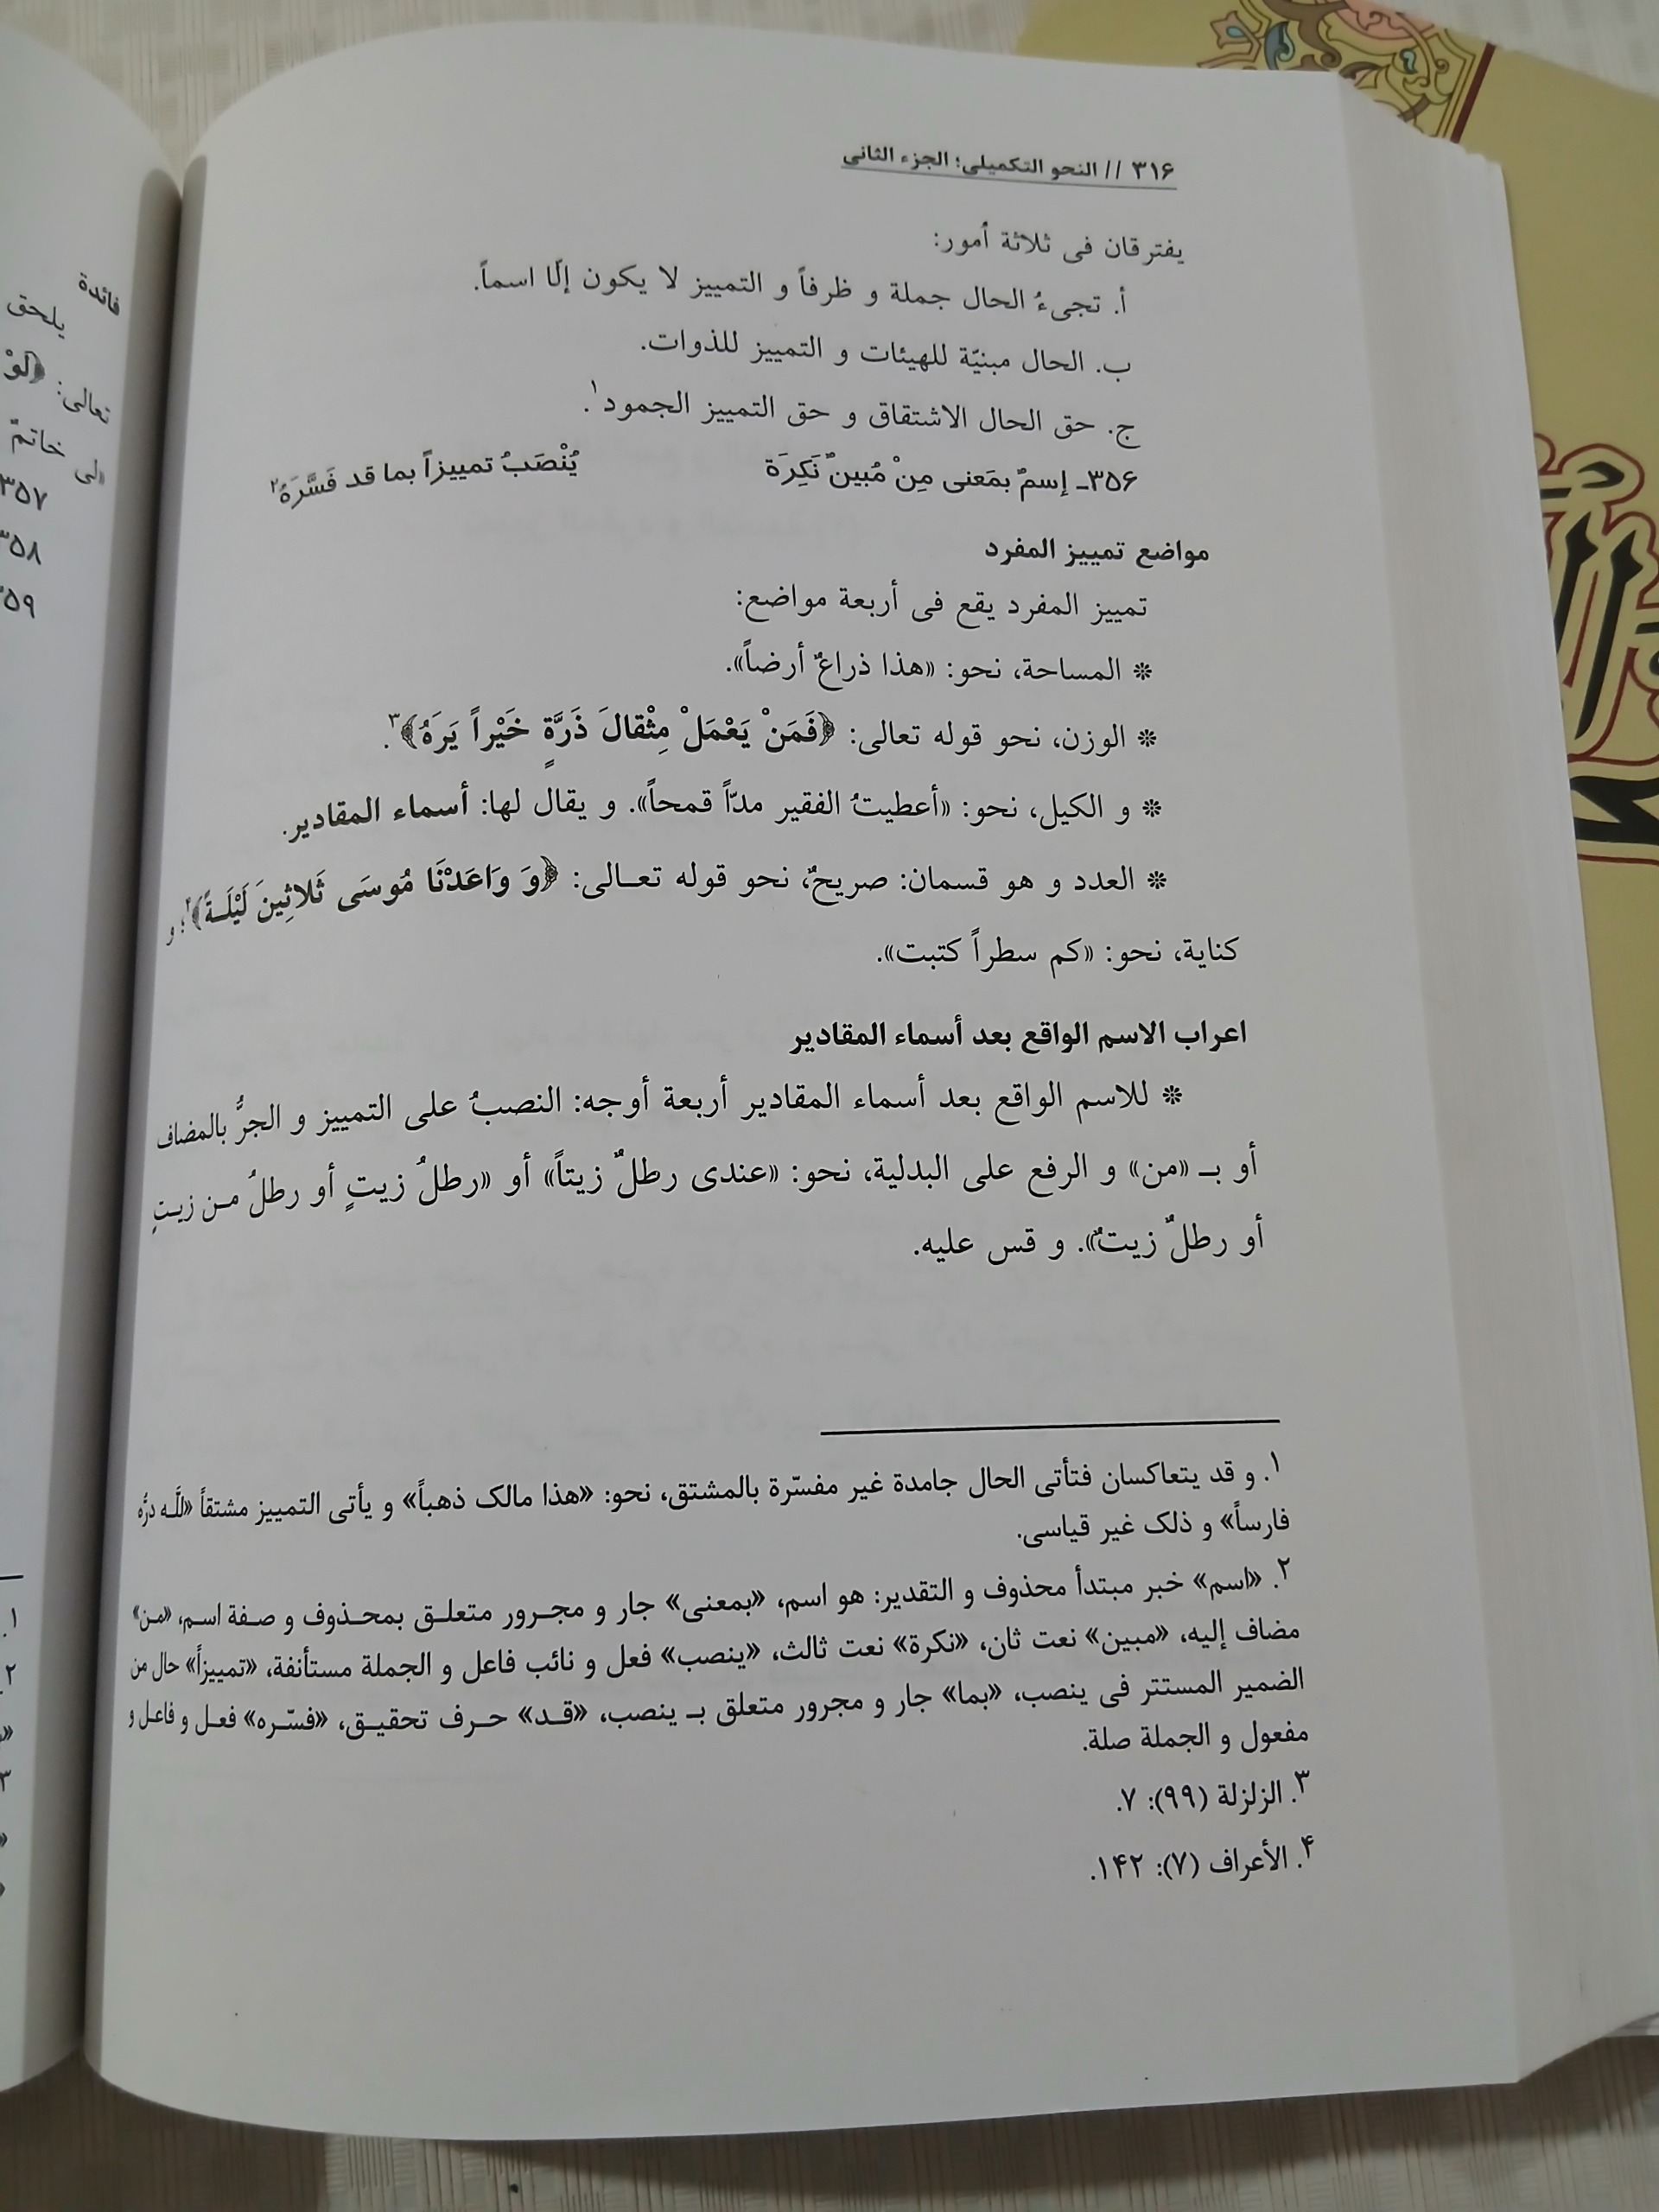 ۳۱۶ // النحو التكميلى؛ الجزء الثانى
يفترقان فى ثلاثة أمور:
أ. تجىءُ الحال جملة و ظرفاً و التمييز لا يكون إلّا اسماً.
ب. الحال مبنيّة للهيئات و التمييز للذوات.
ج. حق الحال الاشتقاق و حق التمييز الجمود۱.
۳۵۶ـ إسمٌ بمَعنى مِنْ مُبينٌ نَكِرَة يُنْصَبُ تمييزاً بما قد فَسَّرَهُ۲
مواضع تمييز المفرد
تمييز المفرد يقع فى أربعة مواضع:
* المساحة، نحو: «هذا ذراعٌ أرضاً».
* الوزن، نحو قوله تعالى: ﴿فَمَنْ يَعْمَلْ مِثْقالَ ذَرَّةٍ خَيْراً يَرَهُ﴾۳.
* و الكيل، نحو: «أعطيتُ الفقير مدّاً قمحاً». و يقال لها: أسماء المقادير.
* العدد و هو قسمان: صريحٌ، نحو قوله تعـالى: ﴿وَ وَاعَدْنَا مُوسَى ثَلاثِينَ لَيْلَـةً﴾۴؛ و
كناية، نحو: «كم سطراً كتبت».
اعراب الاسم الواقع بعد أسماء المقادير
* للاسم الواقع بعد أسماء المقادير أربعة أوجه: النصبُ على التمييز و الجرُّ بالمضاف
أو بـ «من» و الرفع على البدلية، نحو: «عندى رطلٌ زيتاً» أو «رطلُ زيتٍ أو رطلُ مـن زيـتٍ
أو رطلٌ زيتٌ». و قس عليه.
۱. و قد يتعاكسان فتأتى الحال جامدة غير مفسّرة بالمشتق، نحو: «هذا مالک ذهباً» و يأتى التمييز مشتقاً «للّـه درُّه
فارساً» و ذلک غير قياسى.
۲. «اسم» خبر مبتدأ محذوف و التقدير: هو اسم، «بمعنى» جار و مجـرور متعلـق بمحـذوف و صـفة اسـم، «مـن»
مضاف إليه، «مبين» نعت ثان، «نكرة» نعت ثالث، «ينصب» فعل و نائب فاعل و الجملة مستأنفة، «تمييزاً» حال من
الضمير المستتر فى ينصب، «بما» جار و مجرور متعلق بـ ينصب، «قـد» حـرف تحقيـق، «فسّـره» فعـل و فاعـل و
مفعول و الجملة صلة.
۳. الزلزلة (۹۹): ۷.
۴. الأعراف (۷): ۱۴۲.
فائدة
يلحق
تعالى: ﴿لَوْ
«لى خاتمٌ
۳۵۷
۳۵۸
۳۵۹
۱.
۲.
۳